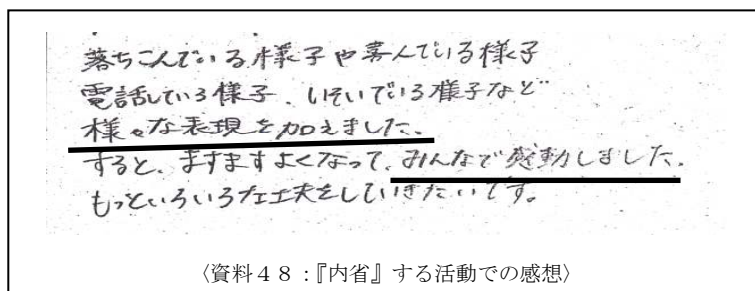 落ちこんでいる様子や喜んでいる様子
電話している様子、いそいでいる様子など
様々な表現を加えました。
すると、ますますよくなって、みんなで感動しました。
もっといろいろな工夫をしていきたいです。
〈資料48:『内省』する活動での感想〉